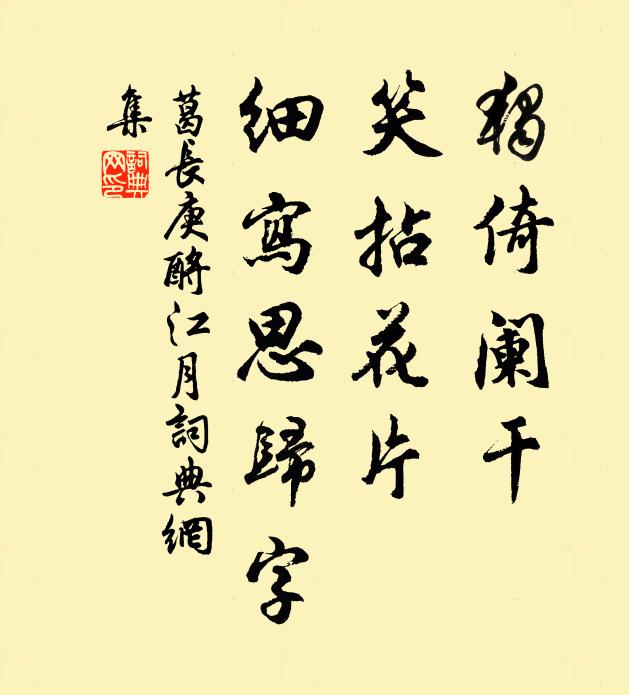 獨倚阑干
笑拈花片
細寫思歸字
葛長庚酹江月詞典網
集
詞典
网印